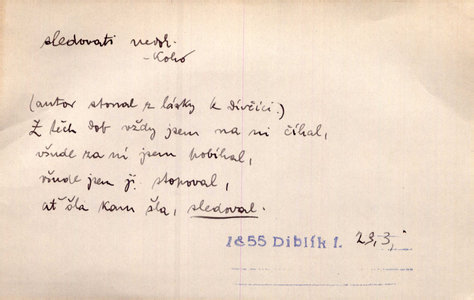 sledovati nedok.
- Koho
(autor stonal z lásky k dívčici.)
Z těch dob vždy jsem na ni číhal,
všude za ní jsem pobíhal,
všude jsem ji stopoval,
ať šla kam šla, sledoval.
1855 Diblík 1. 23,3,